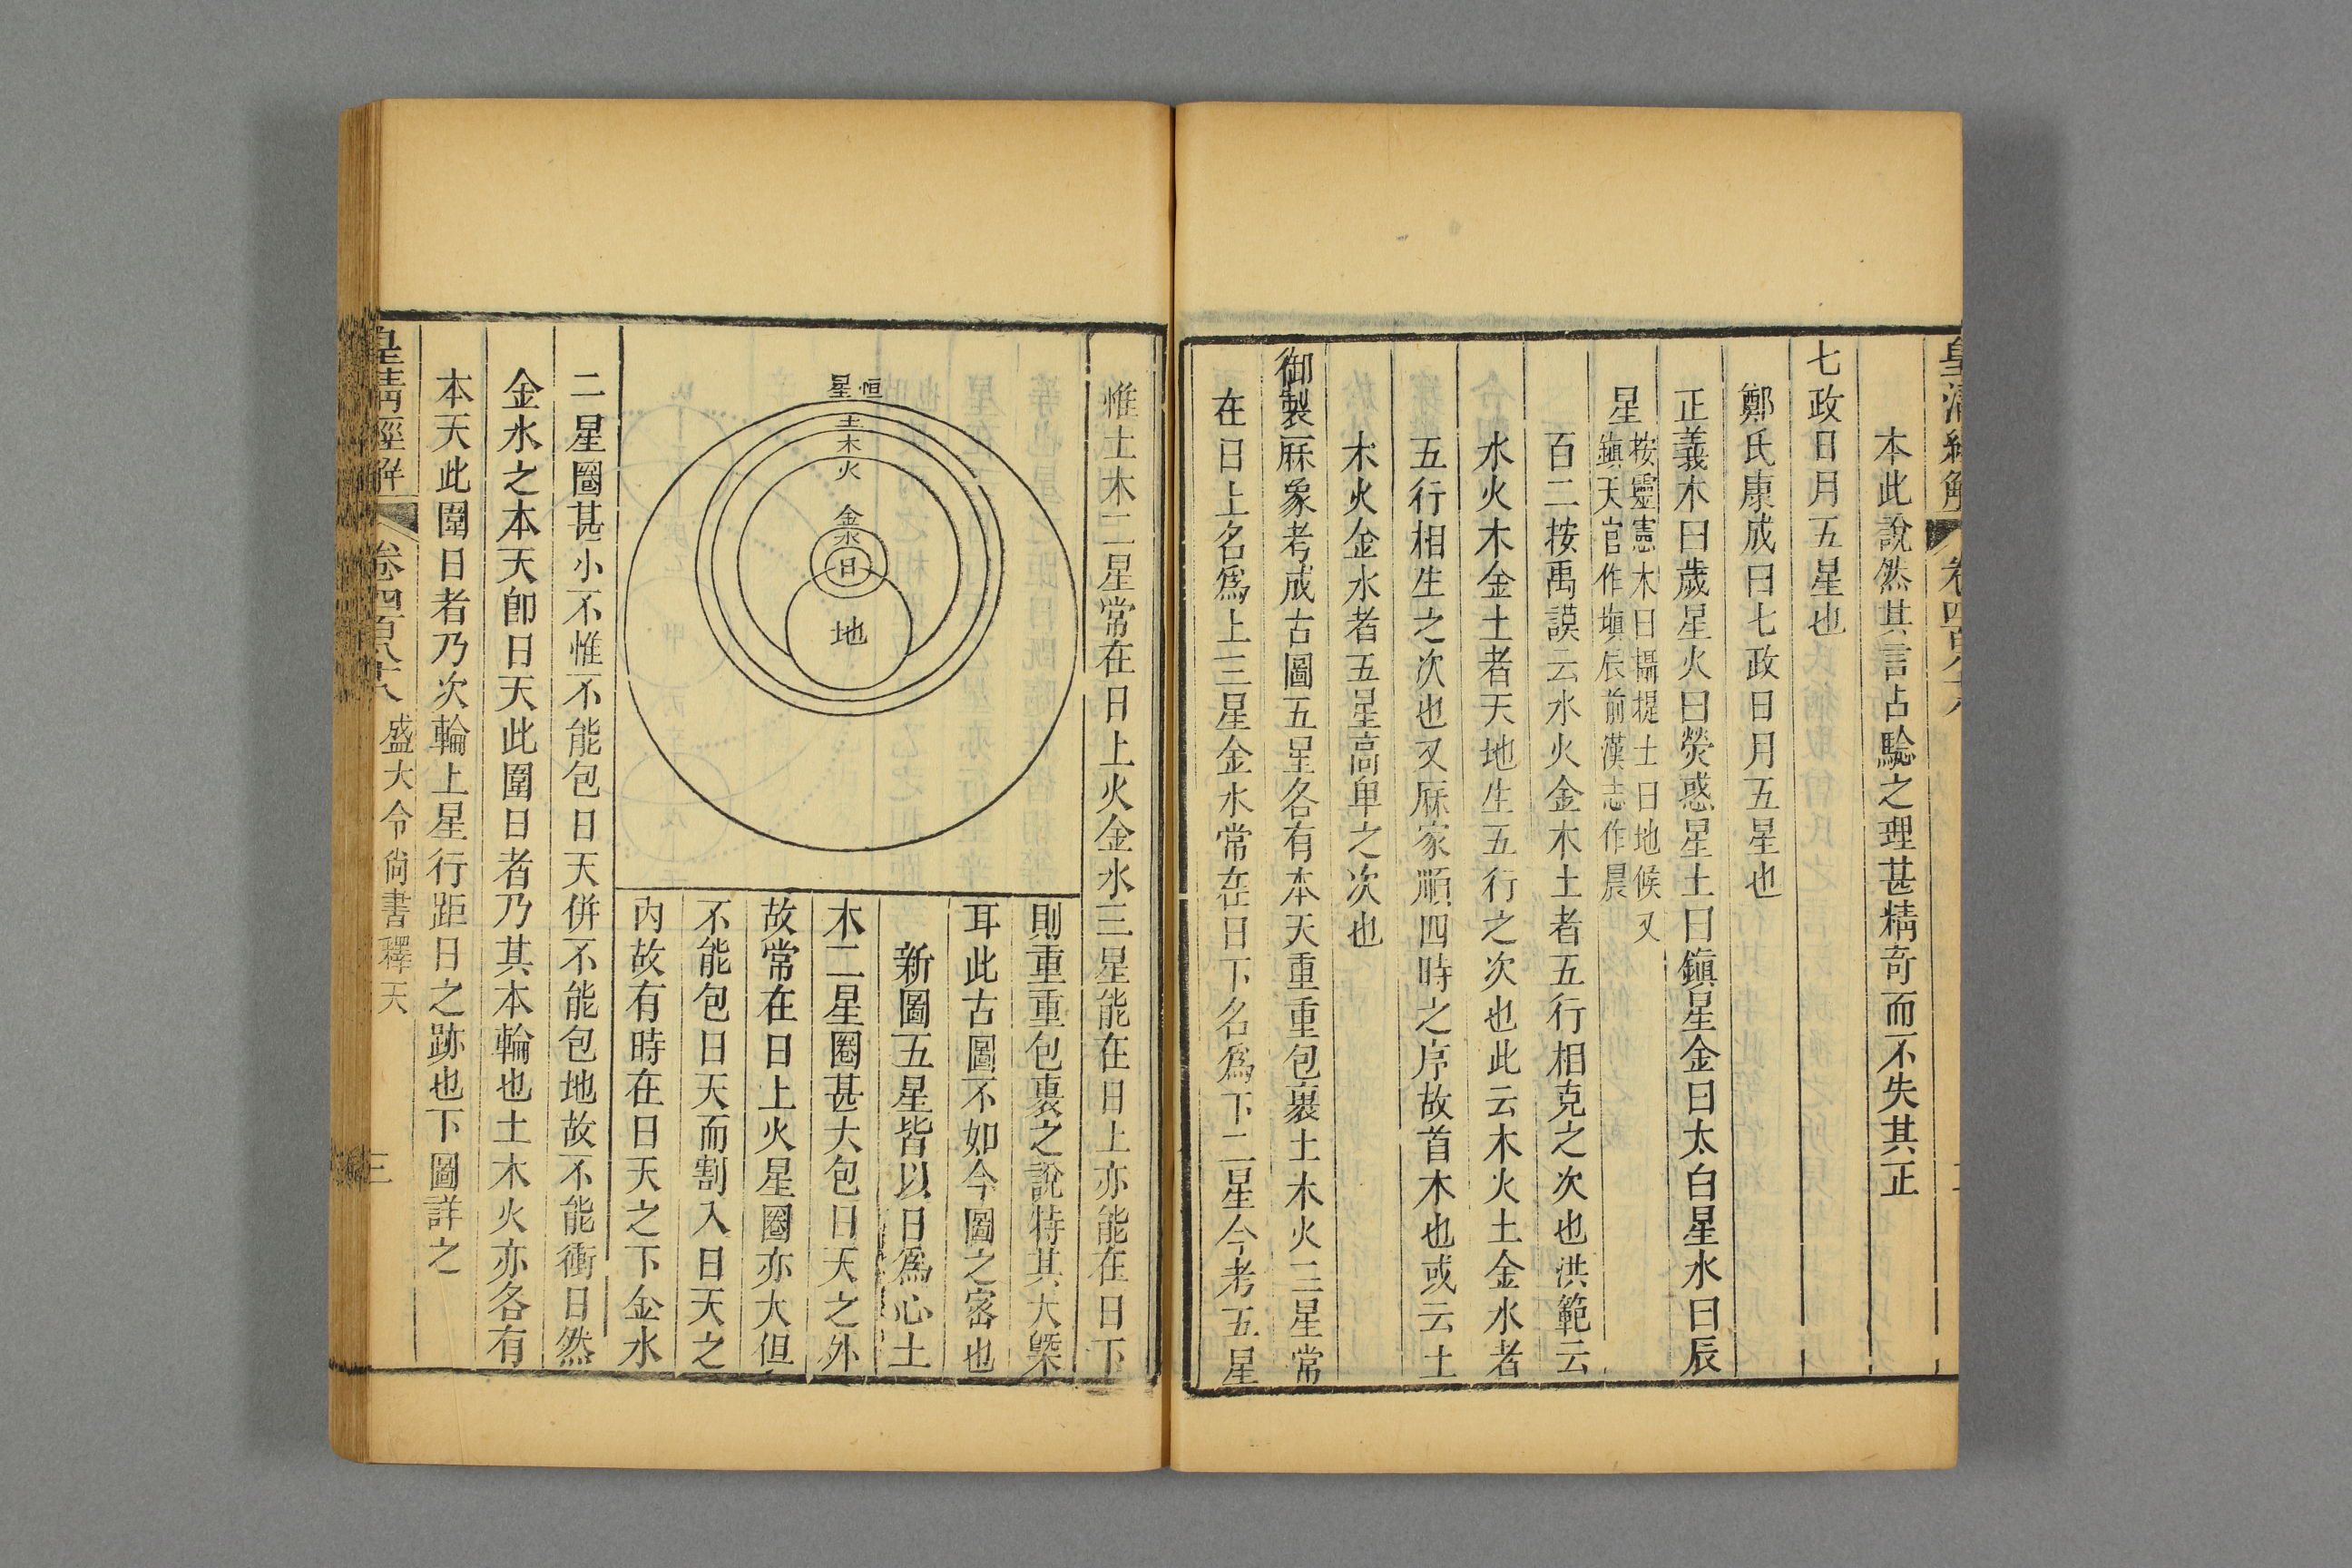 皇清經解
卷四百八十八
本此說然其言占驗之理甚精奇而不失其正
七政日月五星也
鄭氏康成曰七政日月五星也
正義木曰歲星火曰熒惑星土曰鎮星金曰太白星水曰辰
星
按靈憲木曰攝提土曰地候又
鎮天官作塡辰前漢志作晨
百二按禹謨云水火金木土者五行相克之次也洪範云
水火木金土者天地生五行之次也此云木火土金水者
五行相生之次也又厤家順四時之序故首木也或云土
木火金水者五星高卑之次也
御製厤象考成古圖五星各有本天重重包裹土木火三星常
在日上名爲上三星金水常在日下名爲下二星今考五星
惟土木二星常在日上火金水三星能在日上亦能在日下
恒星
土
木
火
金
水
日
地
則重重包裹之說特其大槩
耳此古圖不如今圖之密也
新圖五星皆以日爲心土
木二星圈甚大包日天之外
故常在日上火星圈亦大但
不能包日天而割入日天之
內故有時在日天之下金水
二星圈甚小不惟不能包日天併不能包地故不能衝日然
金水之本天卽日天此圍日者乃其本輪也土木火亦各有
本天此圍日者乃次輪上星行距日之跡也下圖詳之
皇清經解
卷四百八十八
盛大令尙書釋天
三